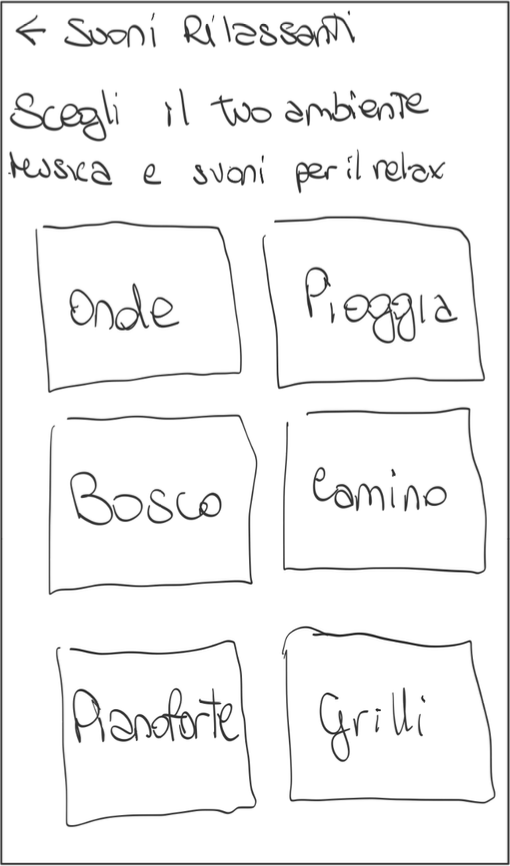 ← Suoni Rilassanti
Scegli il tuo ambiente
Musica e suoni per il relax
Onde
Pioggia
Bosco
Camino
Pianoforte
Grilli